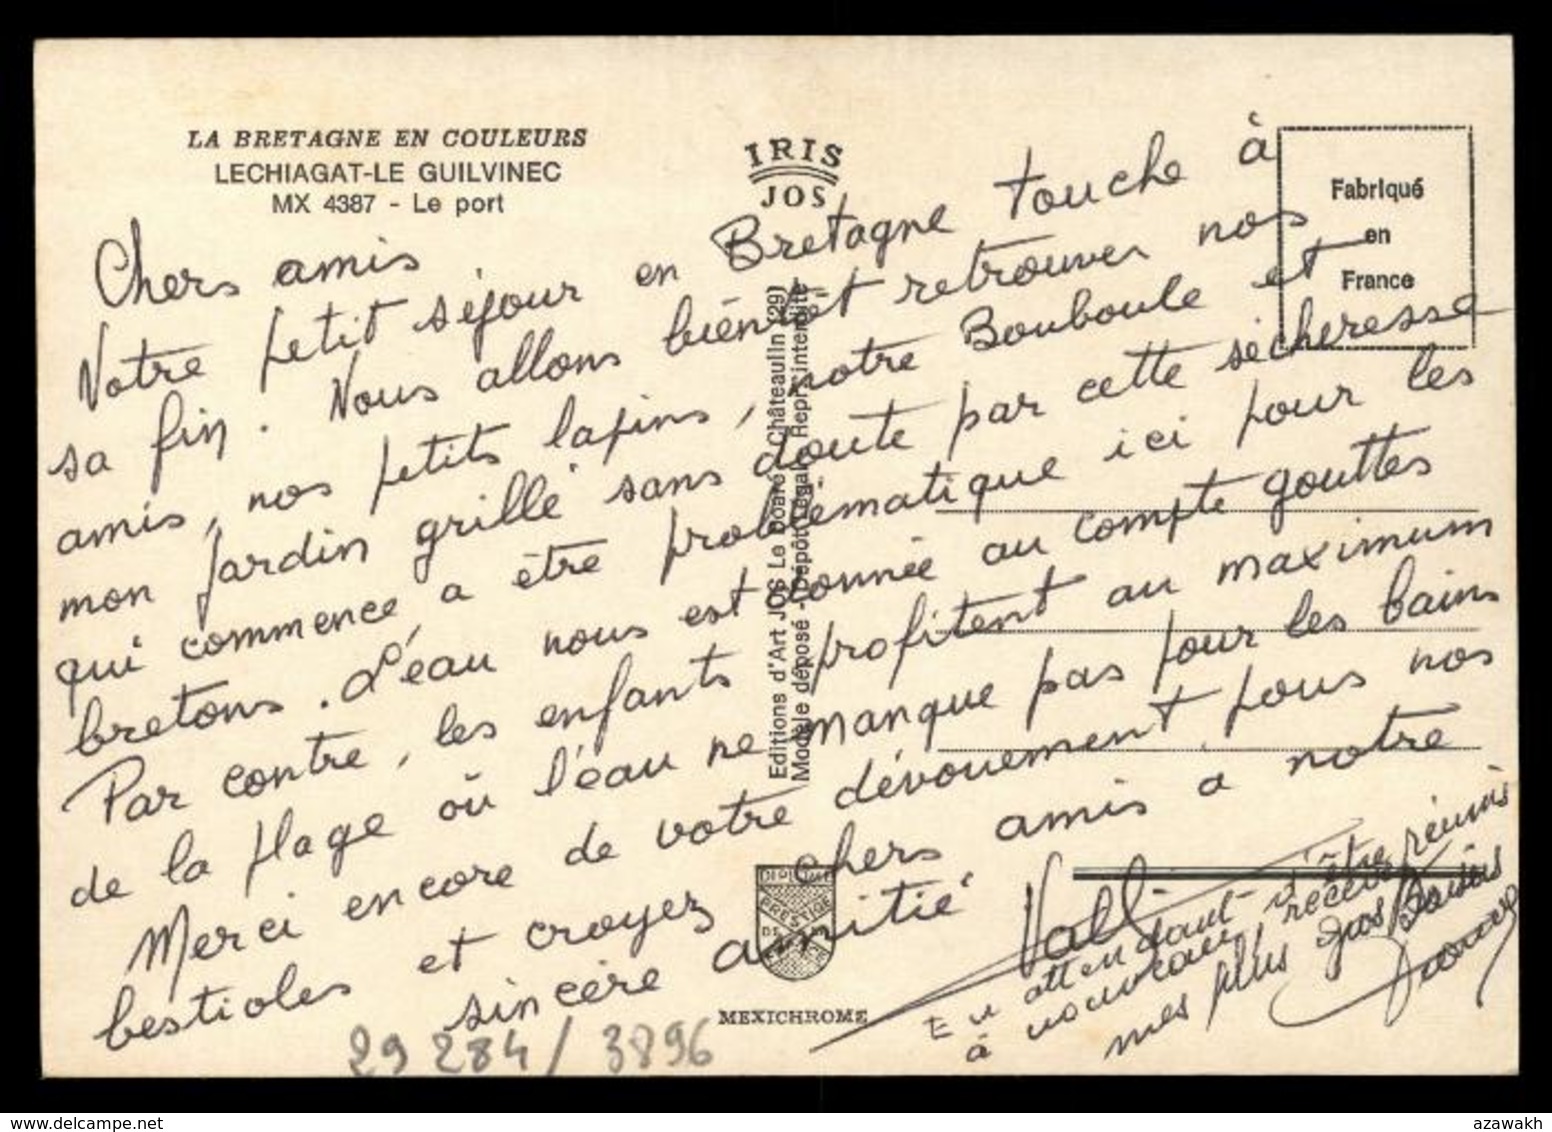 LA BRETAGNE EN COULEURS
LECHIAGAT-LE GUILVINEC
MX 4387 - Le port
IRIS
JOS
Fabriqué
en
France
Chers amis
Notre petit séjour en Bretagne touche à
sa fin. Nous allons bientôt retrouver nos
amis, nos petits lapins, notre Bouboule et
mon jardin grillé sans doute par cette sécheresse
qui commence a être problématique ici pour les
bretons. L'eau nous est donnée au compte gouttes
Par contre, les enfants profitent au maximum
de la plage où l'eau ne manque pas pour les bains
Merci encore de votre dévouement pour nos
bestioles et croyez chers amis a notre
sincère amitié
En attendant d'être réunis
à nouveau, recevez
mes plus gros baisers
Editions d'Art JOS Le Doaré Châteaulin (29)
Modèle déposé - Dépôt légal - Repr. interdite
DIPLOME
PRESTIGE
DE
MEXICHROME
29 284 / 3896
azawakh